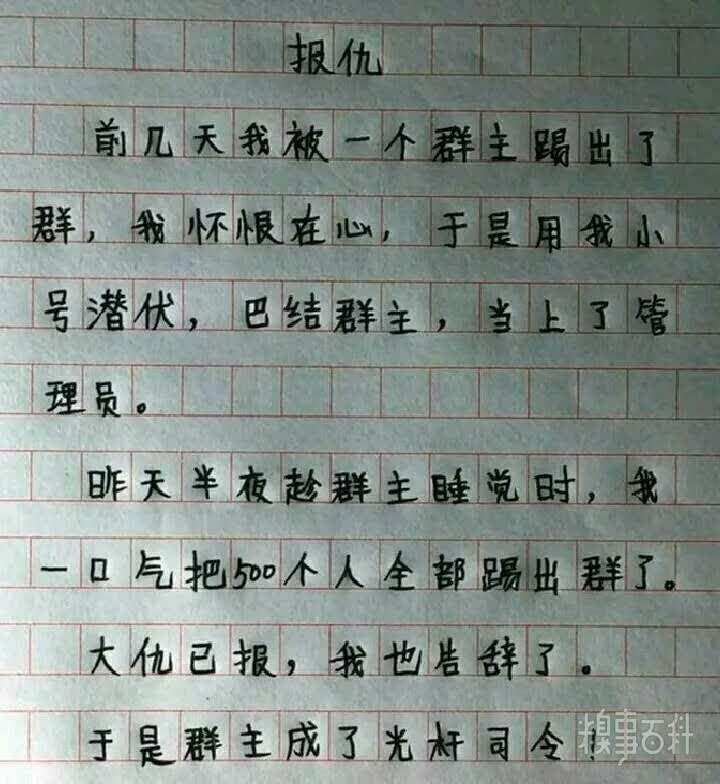 报仇
前几天我被一个群主踢出了
群，我怀恨在心，于是用我小
号潜伏，巴结群主，当上了管
理员。
昨天半夜趁群主睡觉时，我
一口气把500个人全部踢出群了。
大仇已报，我也告辞了。
于是群主成了光杆司令！
糗事百科